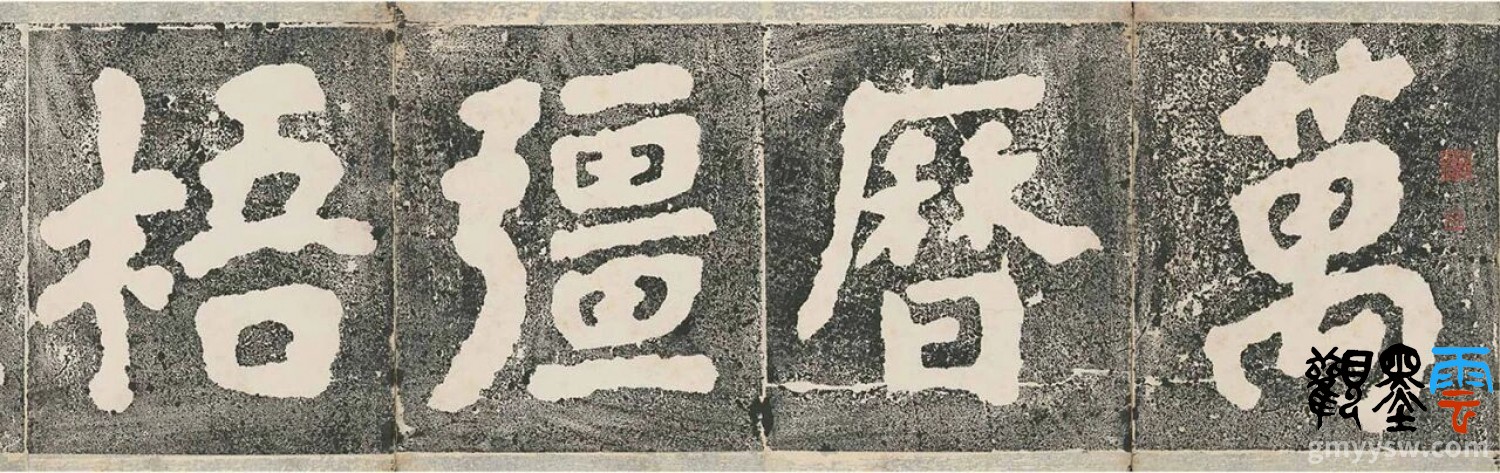 萬曆彊梧
觀墨雲
gmyysw.com